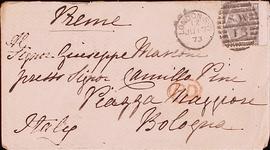 Al
Signor Giuseppe Mazzoni
presso Signor Camillo Pini
Piazza Maggiore
Bologna
Italy
LONDON
73
SW
13
PD